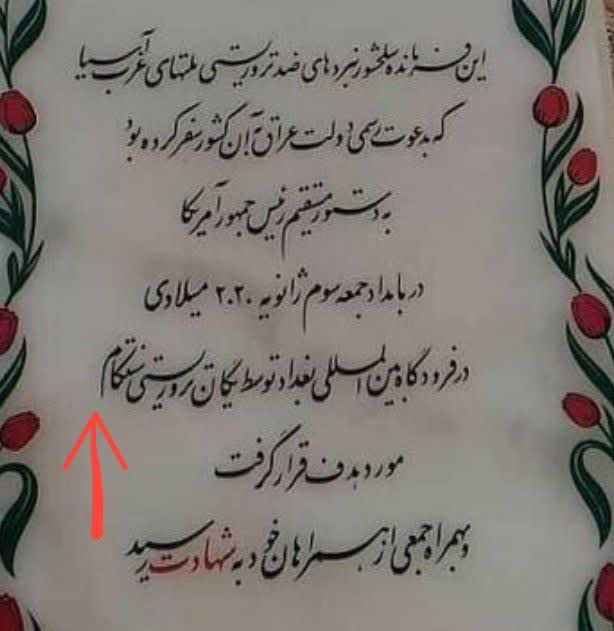 این فرمانده سلحشور نبردهای ضد تروریستی ملتهای غرب آسیا
که بدعوت رسمی دولت عراق به آن کشور سفر کرده بود
به دستور مستقیم رئیس جمهور آمریکا
در بامداد جمعه سوم ژانویه ۲۰۲۰ میلادی
در فرودگاه بین المللی بغداد توسط یگان تروریستی سنتکام
مورد هدف قرار گرفت
و بهمراه جمعی از همراهان خود به شهادت رسید